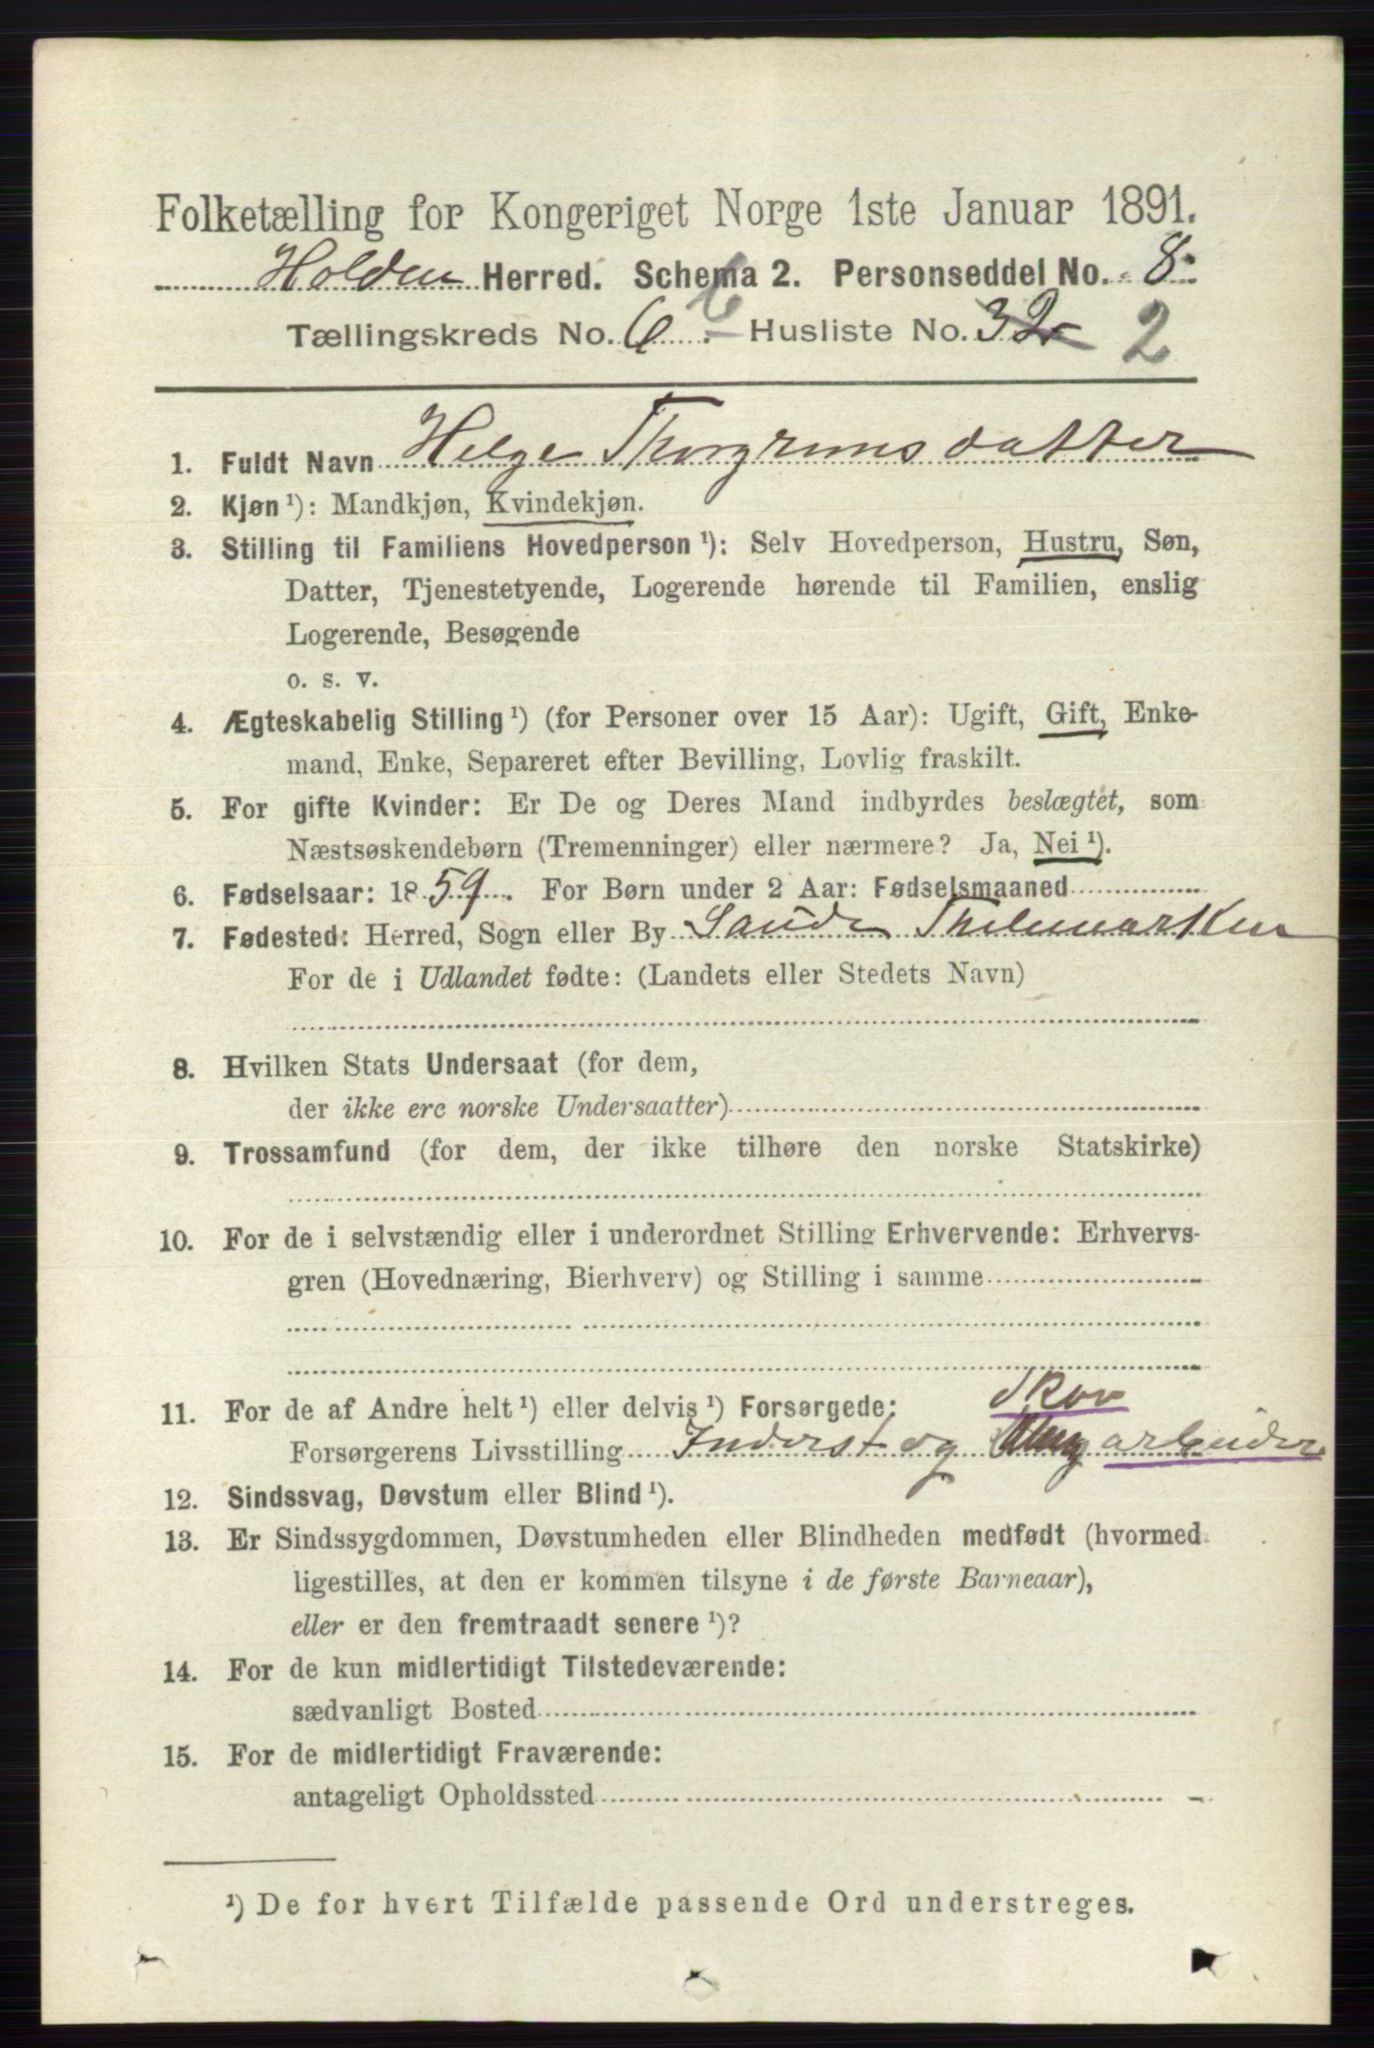 Folketælling for Kongeriget Norge 1ste Januar 1891.
Holden Herred. Schema 2. Personseddel No. 8.
Tællingskreds No. 6. 6 Husliste No. 32 2
1. Fuldt Navn Helge Thorgrimsdatter
2. Kjøn ¹): Mandkjøn, Kvindekjøn.
3. Stilling til Familiens Hovedperson ¹): Selv Hovedperson, Hustru, Søn,
Datter, Tjenestetyende, Logerende hørende til Familien, enslig
Logerende, Besøgende
o. s. v.
4. Ægteskabelig Stilling ¹) (for Personer over 15 Aar): Ugift, Gift, Enke-
mand, Enke, Separeret efter Bevilling, Lovlig fraskilt.
5. For gifte Kvinder: Er De og Deres Mand indbyrdes beslægtet, som
Næstsøskendebørn (Tremenninger) eller nærmere? Ja, Nei ¹).
6. Fødselsaar: 1859. For Børn under 2 Aar: Fødselsmaaned
7. Fødested: Herred, Sogn eller By Saude Thelemarken
For de i Udlandet fødte: (Landets eller Stedets Navn)
8. Hvilken Stats Undersaat (for dem,
der ikke ere norske Undersaatter)
9. Trossamfund (for dem, der ikke tilhøre den norske Statskirke)
10. For de i selvstændig eller i underordnet Stilling Erhvervende: Erhvervs-
gren (Hovednæring, Bierhverv) og Stilling i samme
11. For de af Andre helt ¹) eller delvis ¹) Forsørgede: Skov
Forsørgerens Livsstilling Inderst og arbeider
12. Sindssvag, Døvstum eller Blind ¹).
13. Er Sindssygdommen, Døvstumheden eller Blindheden medfødt (hvormed
ligestilles, at den er kommen tilsyne i de første Barneaar),
eller er den fremtraadt senere ¹)?
14. For de kun midlertidigt Tilstedeværende:
sædvanligt Bosted
15. For de midlertidigt Fraværende:
antageligt Opholdssted
¹) De for hvert Tilfælde passende Ord understreges.